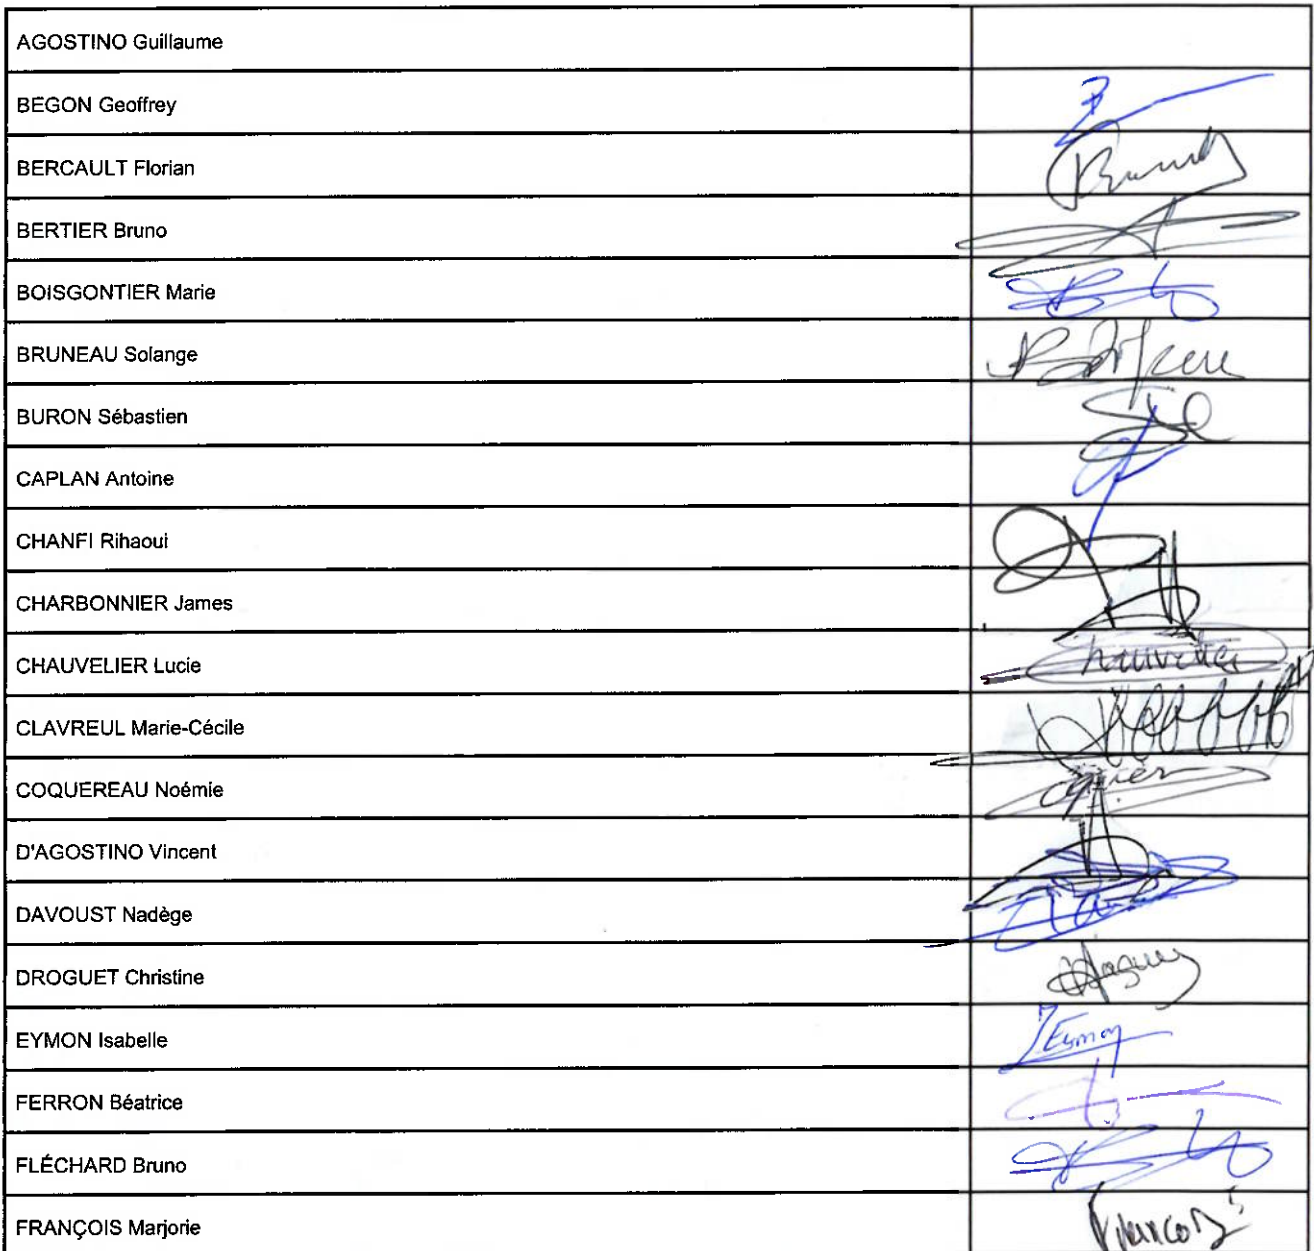 AGOSTINO Guillaume
BEGON Geoffrey
BERCAULT Florian
BERTIER Bruno
BOISGONTIER Marie
BRUNEAU Solange
BURON Sébastien
CAPLAN Antoine
CHANFI Rihaoui
CHARBONNIER James
CHAUVELIER Lucie
CLAVREUL Marie-Cécile
COQUEREAU Noémie
D'AGOSTINO Vincent
DAVOUST Nadège
DROGUET Christine
EYMON Isabelle Eymon
FERRON Béatrice
FLÉCHARD Bruno
FRANÇOIS Marjorie